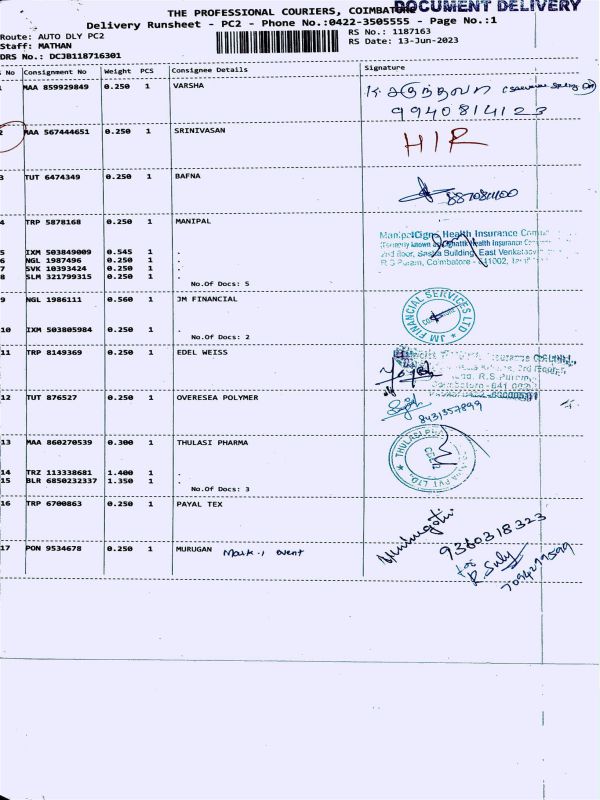 THE PROFESSIONAL COURIERS, COIMBATORE
DOCUMENT DELIVERY
Delivery Runsheet - PC2 - Phone No.:0422-3505555 - Page No.:1
Route: AUTO DLY PC2
RS No.: 1187163
Staff: MATHAN
RS Date: 13-Jun-2023
DRS No.: DCJB118716301
S No Consignment No Weight PCS Consignee Details Signature
1 MAA 859929849 0.250 1 VARSHA
9940814123
2 MAA 567444651 0.250 1 SRINIVASAN HIR
3 TUT 6474349 0.250 1 BAFNA
4 TRP 5878168 0.250 1 MANIPAL
ManipalCigna Health Insurance
5 IXM 503849009 0.545 1 .
6 NGL 1987496 0.250 1 .
7 SVK 10393424 0.250 1 .
8 SLM 321799315 0.250 1 .
No.Of Docs: 5
9 NGL 1986111 0.560 1 JM FINANCIAL
JM FINANCIAL SERVICES LTD
10 IXM 503805984 0.250 1 .
No.Of Docs: 2
11 TRP 8149369 0.250 1 EDEL WEISS
12 TUT 876527 0.250 1 OVERESEA POLYMER
8431357899
13 MAA 860270539 0.300 1 THULASI PHARMA
14 TRZ 113338681 1.400 1 .
15 BLR 6850232337 1.350 1 .
No.Of Docs: 3
16 TRP 6700863 0.250 1 PAYAL TEX
9360318323
17 PON 9534678 0.250 1 MURUGAN Mark 1 event